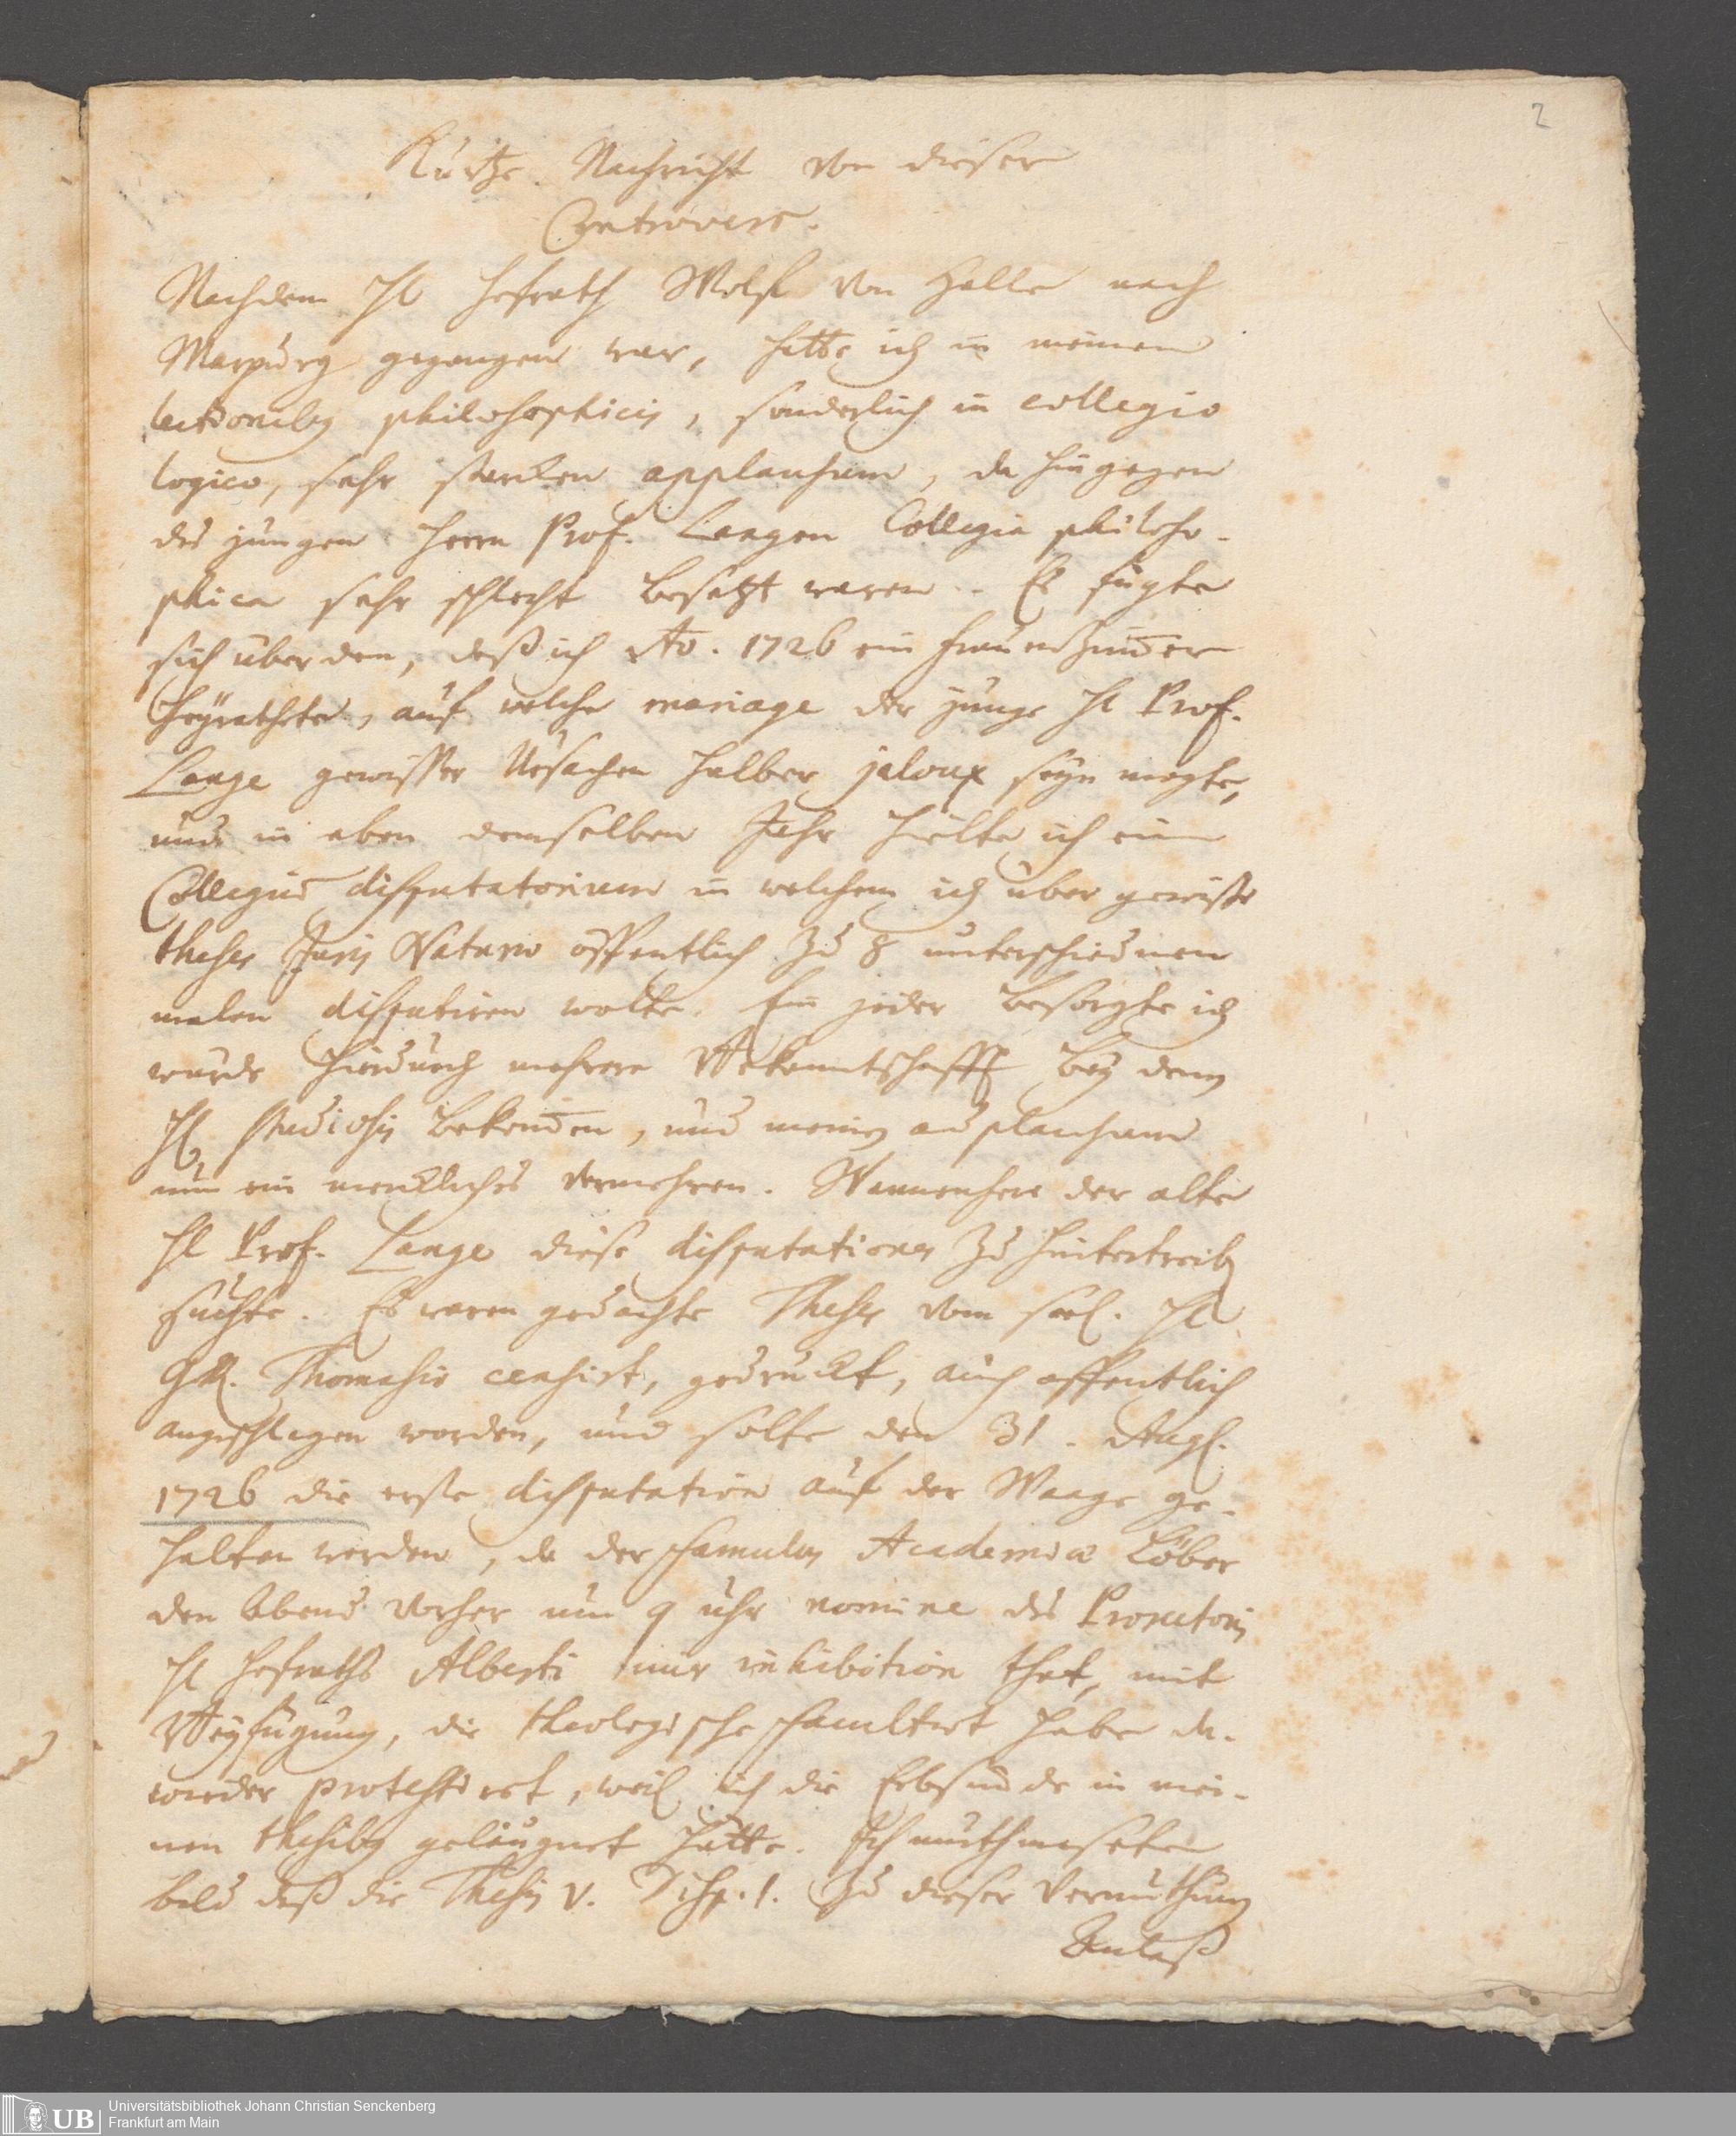 2
Kurtze Nachricht von dieser
Controvers.
Nachdem Hl Hofrath Wolff von Halle nach
Marpurg gegangen war, hatte ich in meinen
lectionibus philosophicis, sonderlich in collegio
logico, sehr starcken applausum, da hingegen
des jungen Herrn Prof. Langen Collegia philoso-
phica sehr schlecht besetzt waren. Es fügte
sich über dem, daß ich Ao. 1726 ein Frauenzimer
heyrathete, auf welche mariage der junge Hl Prof.
Lange gewisser Ursachen halber jaloux seyn mogte,
und in eben demselben Jahr hielte ich ein
Collegium disputatorium in welchem ich über gewisse
theses Juris Naturae öffentlich zu 8 unterschiednen
malen disputiren wolte. Ein jeder besorgte ich
würde hierdurch mehrere Bekanntschafft bey denen
H. Studiosis bekomen, und meinen applausum
um ein merckliches vermehren. Wannenhero der alte
Hl Prof. Lange diese disputationes zu hintertreiben
suchte. Es waren gedachte Theses vom seel. Hl
GR. Thomasio censirt, gedruckt, auch offentlich
angeschlagen worden, und solte den 31. Aug.
1726 die erste disputation auf der Waage ge-
halten werden, da der famulus Academiae Löber
den Abend vorher um 9 uhr nomine des Prorectoris
Hl Hofraths Alberti mir inhibition that, mit
Beyfügung, die theologische facultaet habe da-
wieder protestiret, weil ich die Erbsünde in mei-
nen thesibus geläugnet hätte. Ich muthmasete
bald daß die Thesis V. Disp. 1. zu dieser Vermuthung
Anlaß
UB
Universitätsbibliothek Johann Christian Senckenberg
Frankfurt am Main